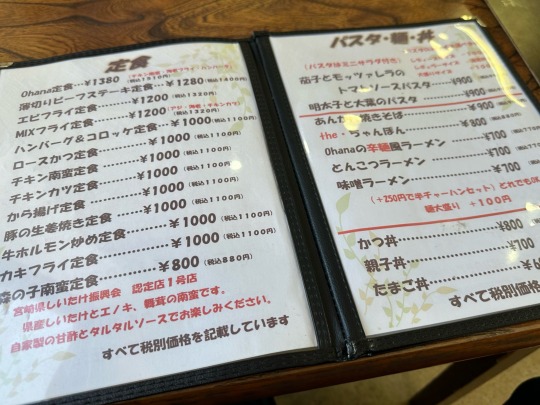 定食
(チキン南蛮 海老フライ ハンバーグ)
Ohana定食…¥1380 (税込1510円)
薄切りビーフステーキ定食…¥1280 (税込1400円)
エビフライ定食……¥1200 (税込1320円)
(アジ・海老・チキンカツ)
MIXフライ定食……¥1200 (税込1320円)
ハンバーグ&コロッケ定食…¥1000 (税込1100円)
ロースかつ定食………¥1000 (税込1100円)
チキン南蛮定食………¥1000 (税込1100円)
チキンカツ定食………¥1000 (税込1100円)
から揚げ定食…………¥1000 (税込1100円)
豚の生姜焼き定食……¥1000 (税込1100円)
牛ホルモン炒め定食…¥1000 (税込1100円)
カキフライ定食………¥1000 (税込1100円)
森の子南蛮定食………¥800 (税込880円)
宮崎県しいたけ振興会 認定店1号店
県産しいたけとエノキ、舞茸の南蛮です。
自家製の甘酢とタルタルソースでお楽しみください。
すべて税別価格を記載しています
パスタ・麺・丼
(パスタはミニサラダ付き)
茄子とモッツァレラの
トマトソースパスタ……¥900
明太子と大葉のパスタ……¥900
あんかけ焼きそば………¥900
the・ちゃんぽん………¥800
Ohanaの辛麺風ラーメン…¥700
とんこつラーメン………¥700
味噌ラーメン……………¥700
(+250円で半チャーハンセット)
麺大盛り +100円
かつ丼……………………¥800
親子丼……………………¥700
たまご丼
すべて税別価格を記載